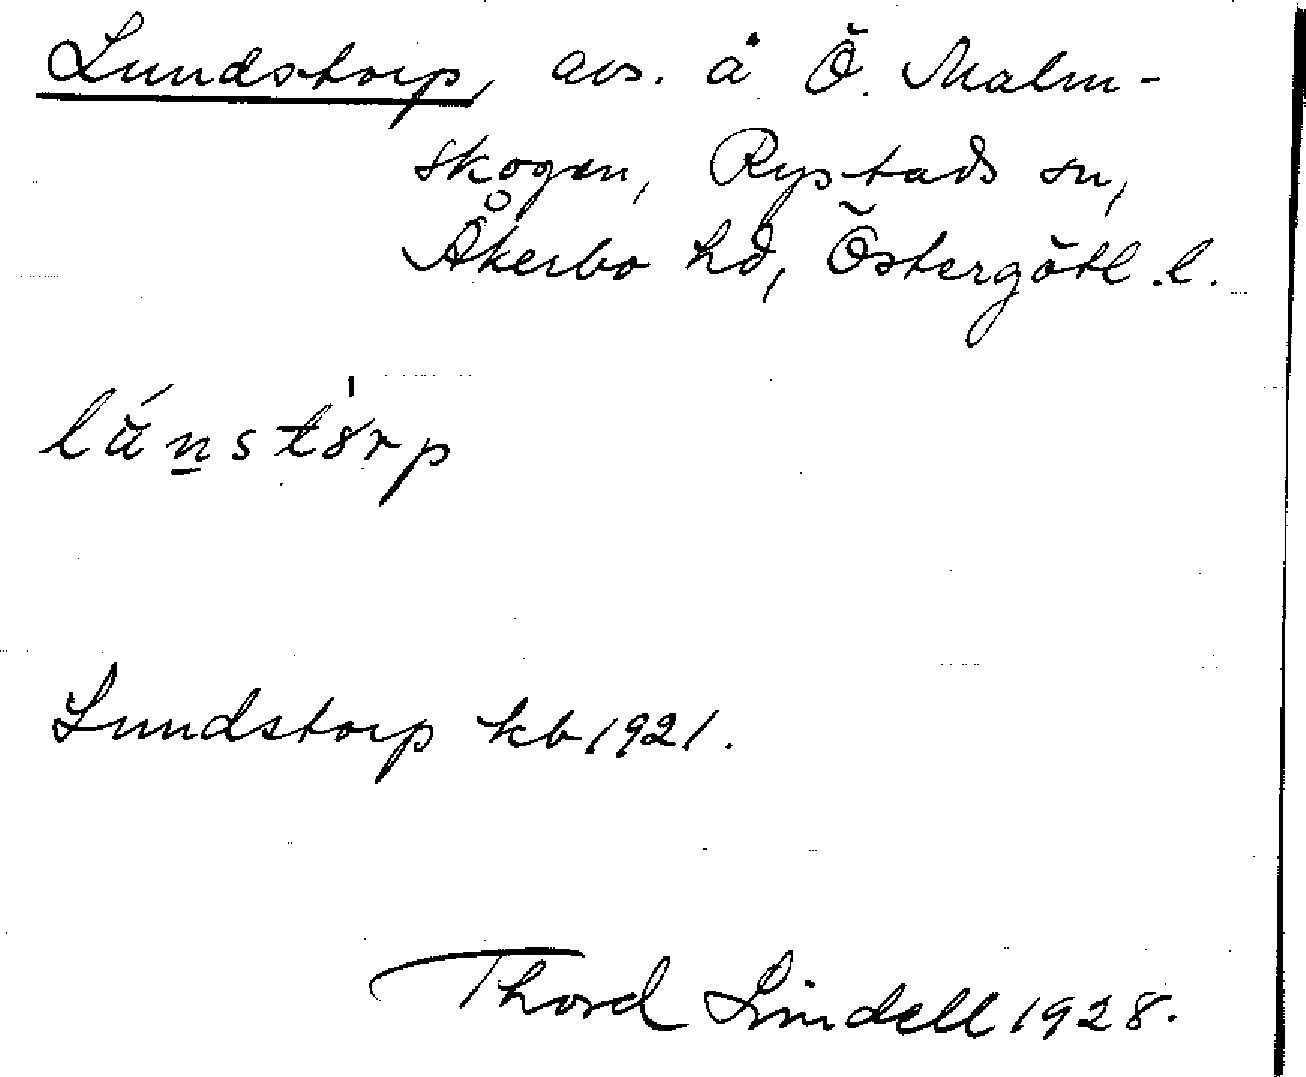 Lundstorp, avs. å Ö. Malm-
skogen, Rystads sn,
Åkerbo hd, Östergötl. l.
Lundstorp kb 1921.
Thord Lindell 1928.